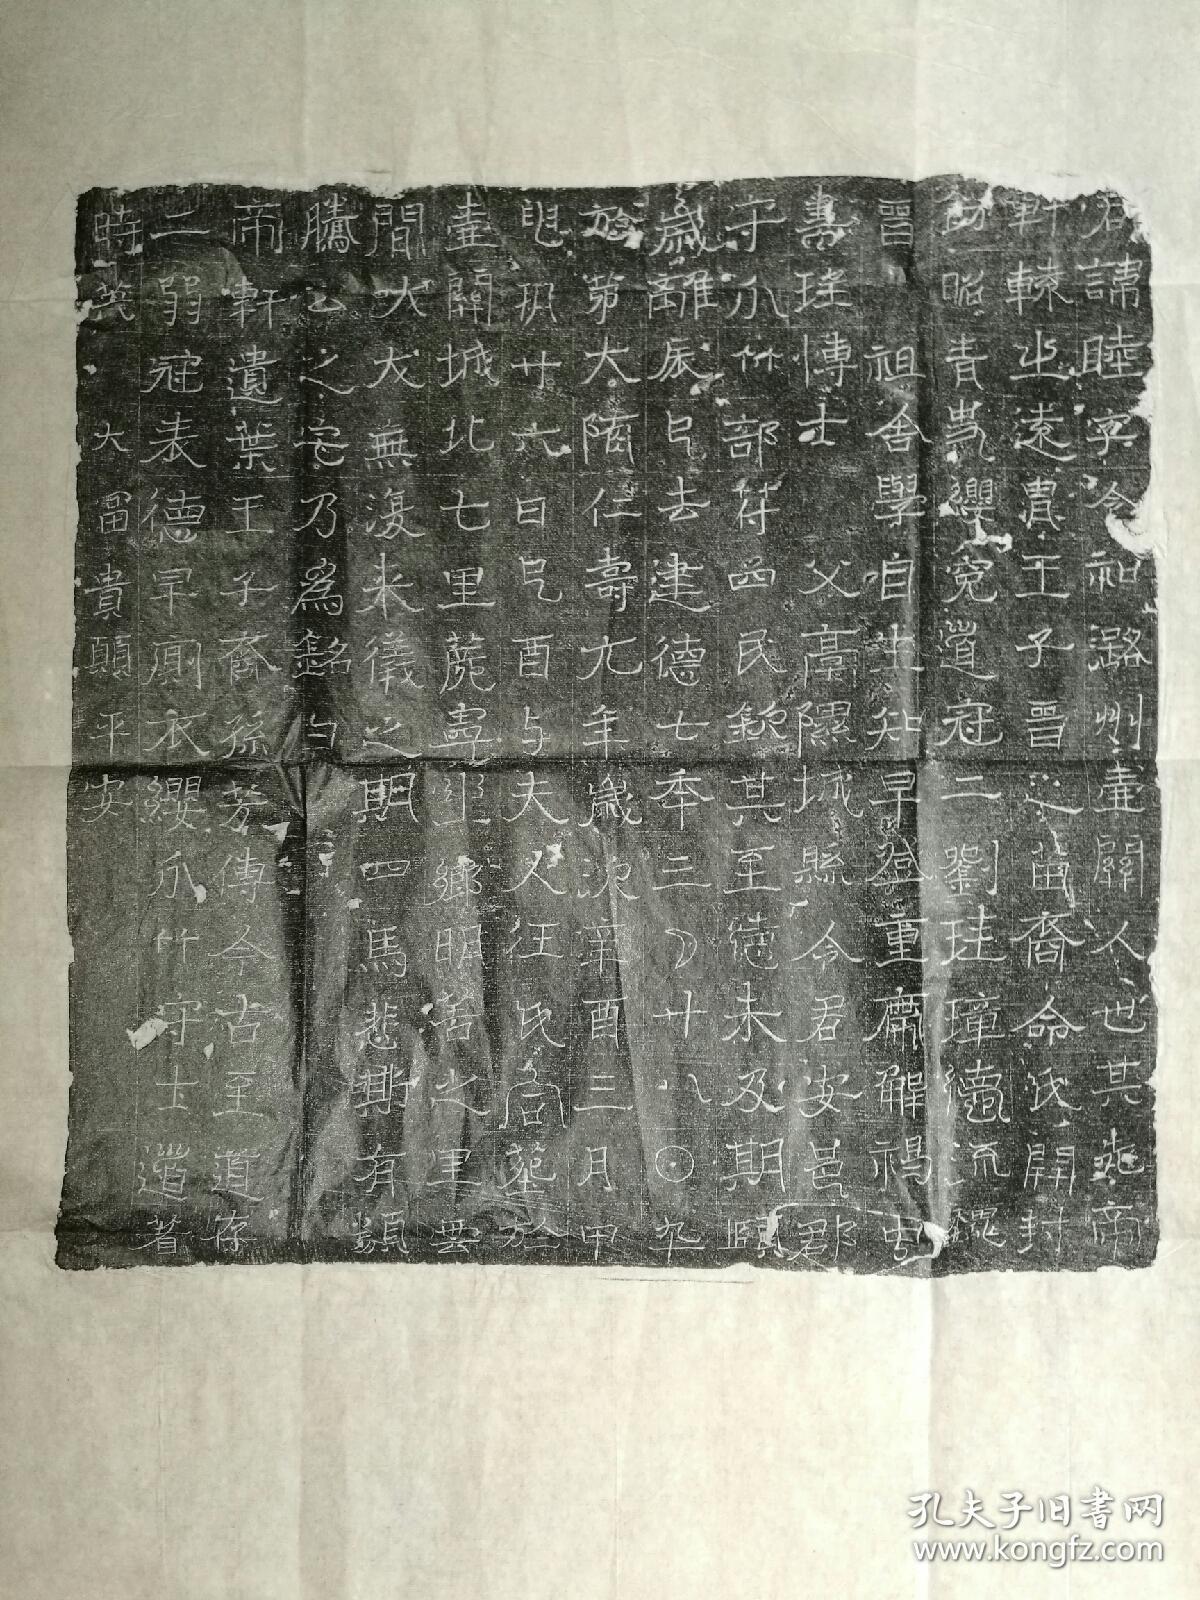 君諱睦字令和潞州壺關人也其先帝
軒轅之遠胄王子晉之苗裔命氏開封
昭青史纓冕道冠二劉珪璋德流魏
晉祖舍學自生知早登重席解褐
書瑤博士父高隰城縣令君安邑郡
守爪竹部符四民欽其至德未及期頤
歲離辰巳去建德七年三月廿八日卒
於第大隋仁壽元年歲次辛酉三月甲
申朔廿六日己酉与夫人汪氏合葬於
壺關城北七里鄉明善之里其
間大大無復来儀之期四馬悲嘶有
騰之之乃為銘曰
帝軒遺葉王子裔孫芳傳今古至道存
二弱冠表德早廁衣纓爪竹守士道著
時英 大富貴願平安
孔夫子旧书网
www.kongfz.com